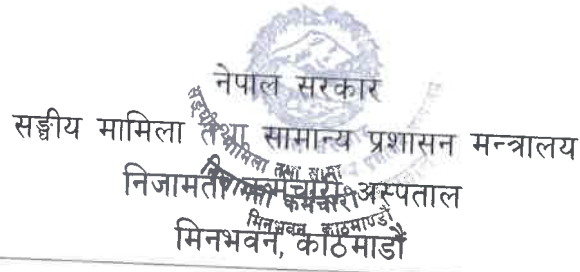 नेपाल सरकार
सङ्घीय मामिला तथा सामान्य प्रशासन मन्त्रालय
निजामती कर्मचारी अस्पताल
मिनभवन, काठमाडौं